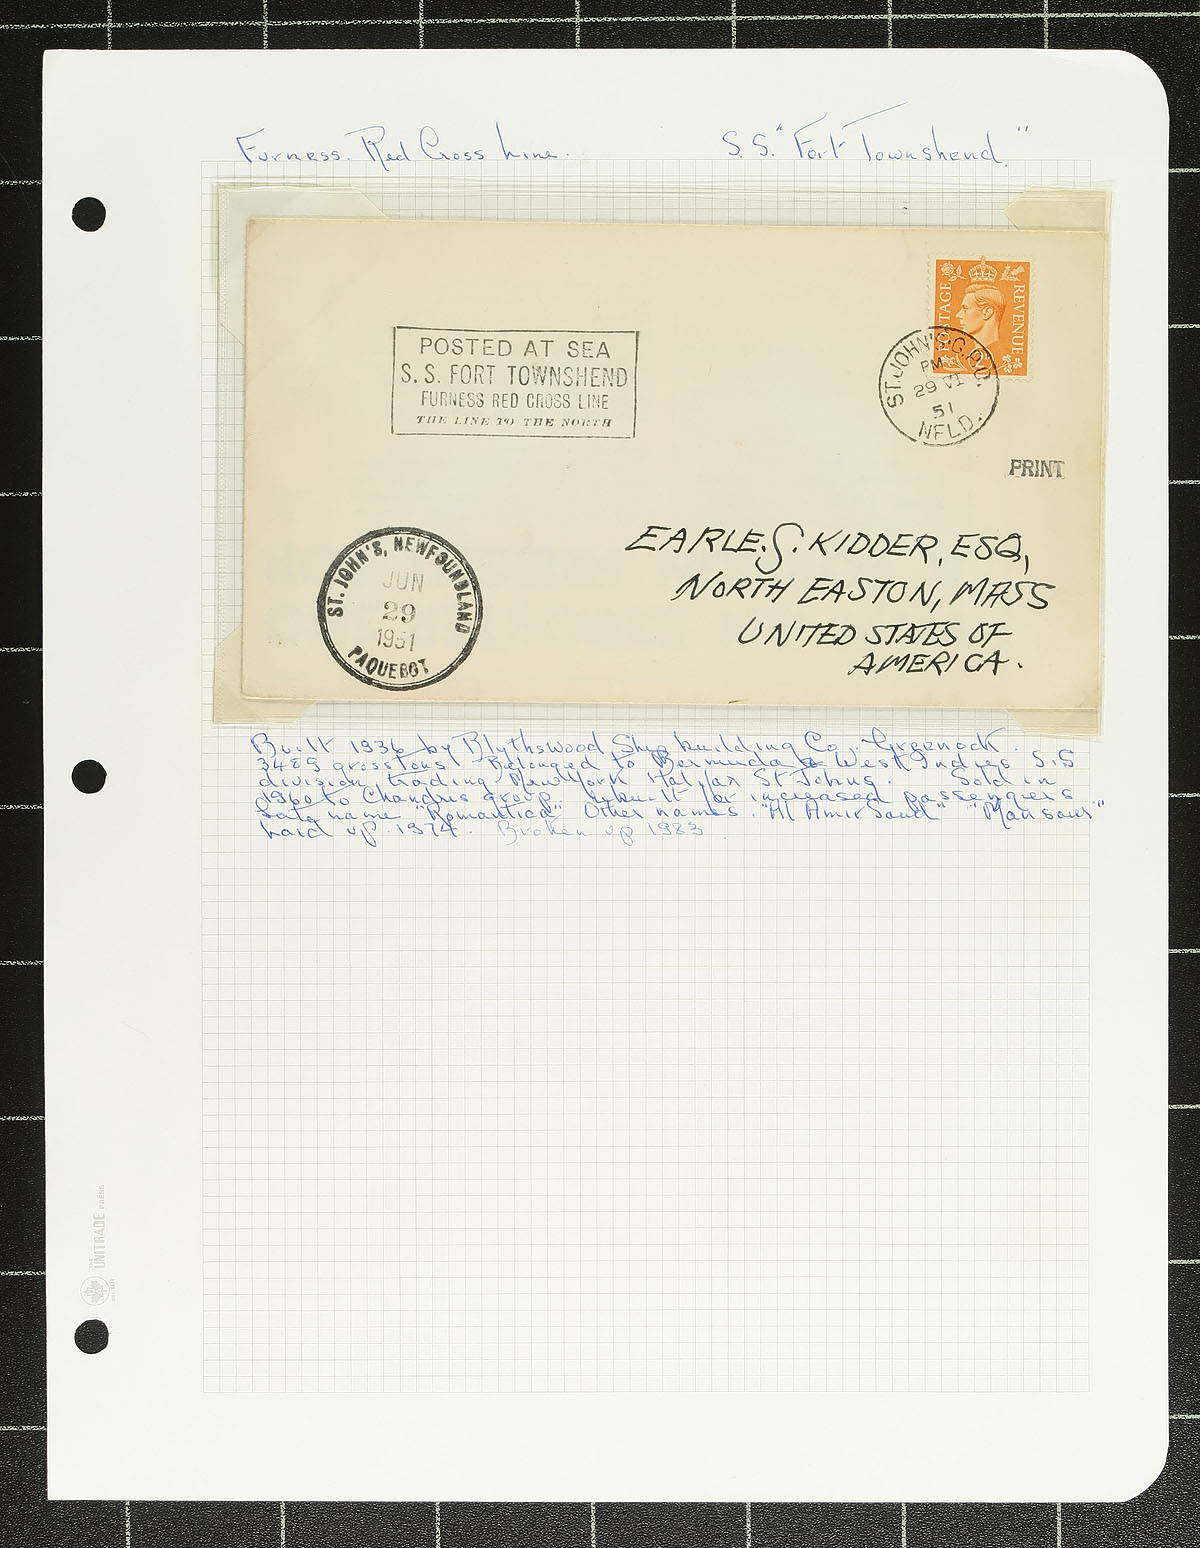 Furness. Red Cross Line.
S.S. "Fort Townshend."
POSTAGE REVENUE
POSTED AT SEA
S. S. FORT TOWNSHEND
FURNESS RED CROSS LINE
THE LINE TO THE NORTH
ST. JOHN'S. G.P.O.
PM
29 VI
51
NFLD.
PRINT
EARLE. S. KIDDER, ESQ,
NORTH EASTON, MASS
UNITED STATES OF
AMERICA.
ST. JOHN'S, NEWFOUNDLAND
JUN
29
1951
PAQUEBOT
Built 1936 by Blythswood Shipbuilding Co. Greenock.
3489 gross tons Belonged to Bermuda & West Indies S.S
division, trading New York Halifax St Johns. Sold in
1960 to Chandris group rebuilt for increased passengers
name "Romantica" Other names. "Al Amir Saud" "Mansour"
Laid up 1974. Broken up 1983.
THE
UNITRADE PRESS